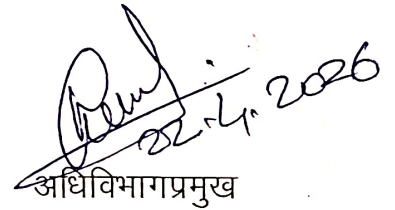 22.4.2026
अधिविभागप्रमुख